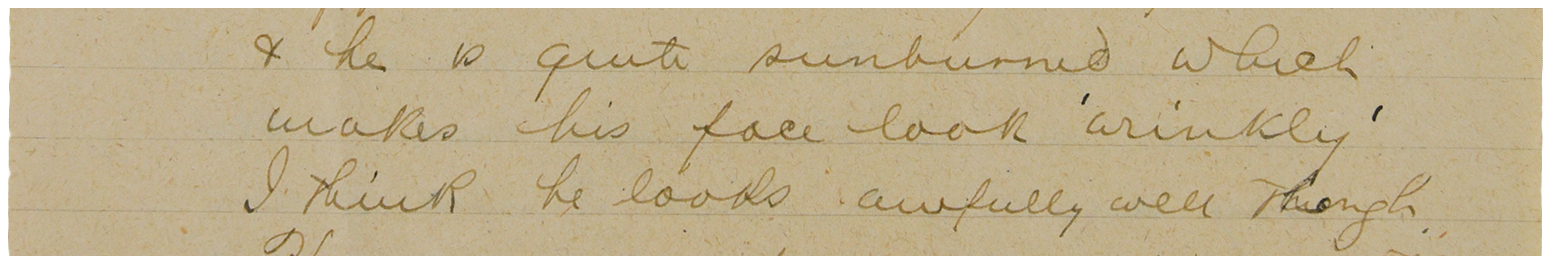 & he is quite sunburned which
makes his face look 'wrinkly'
I think he looks awfully well though.